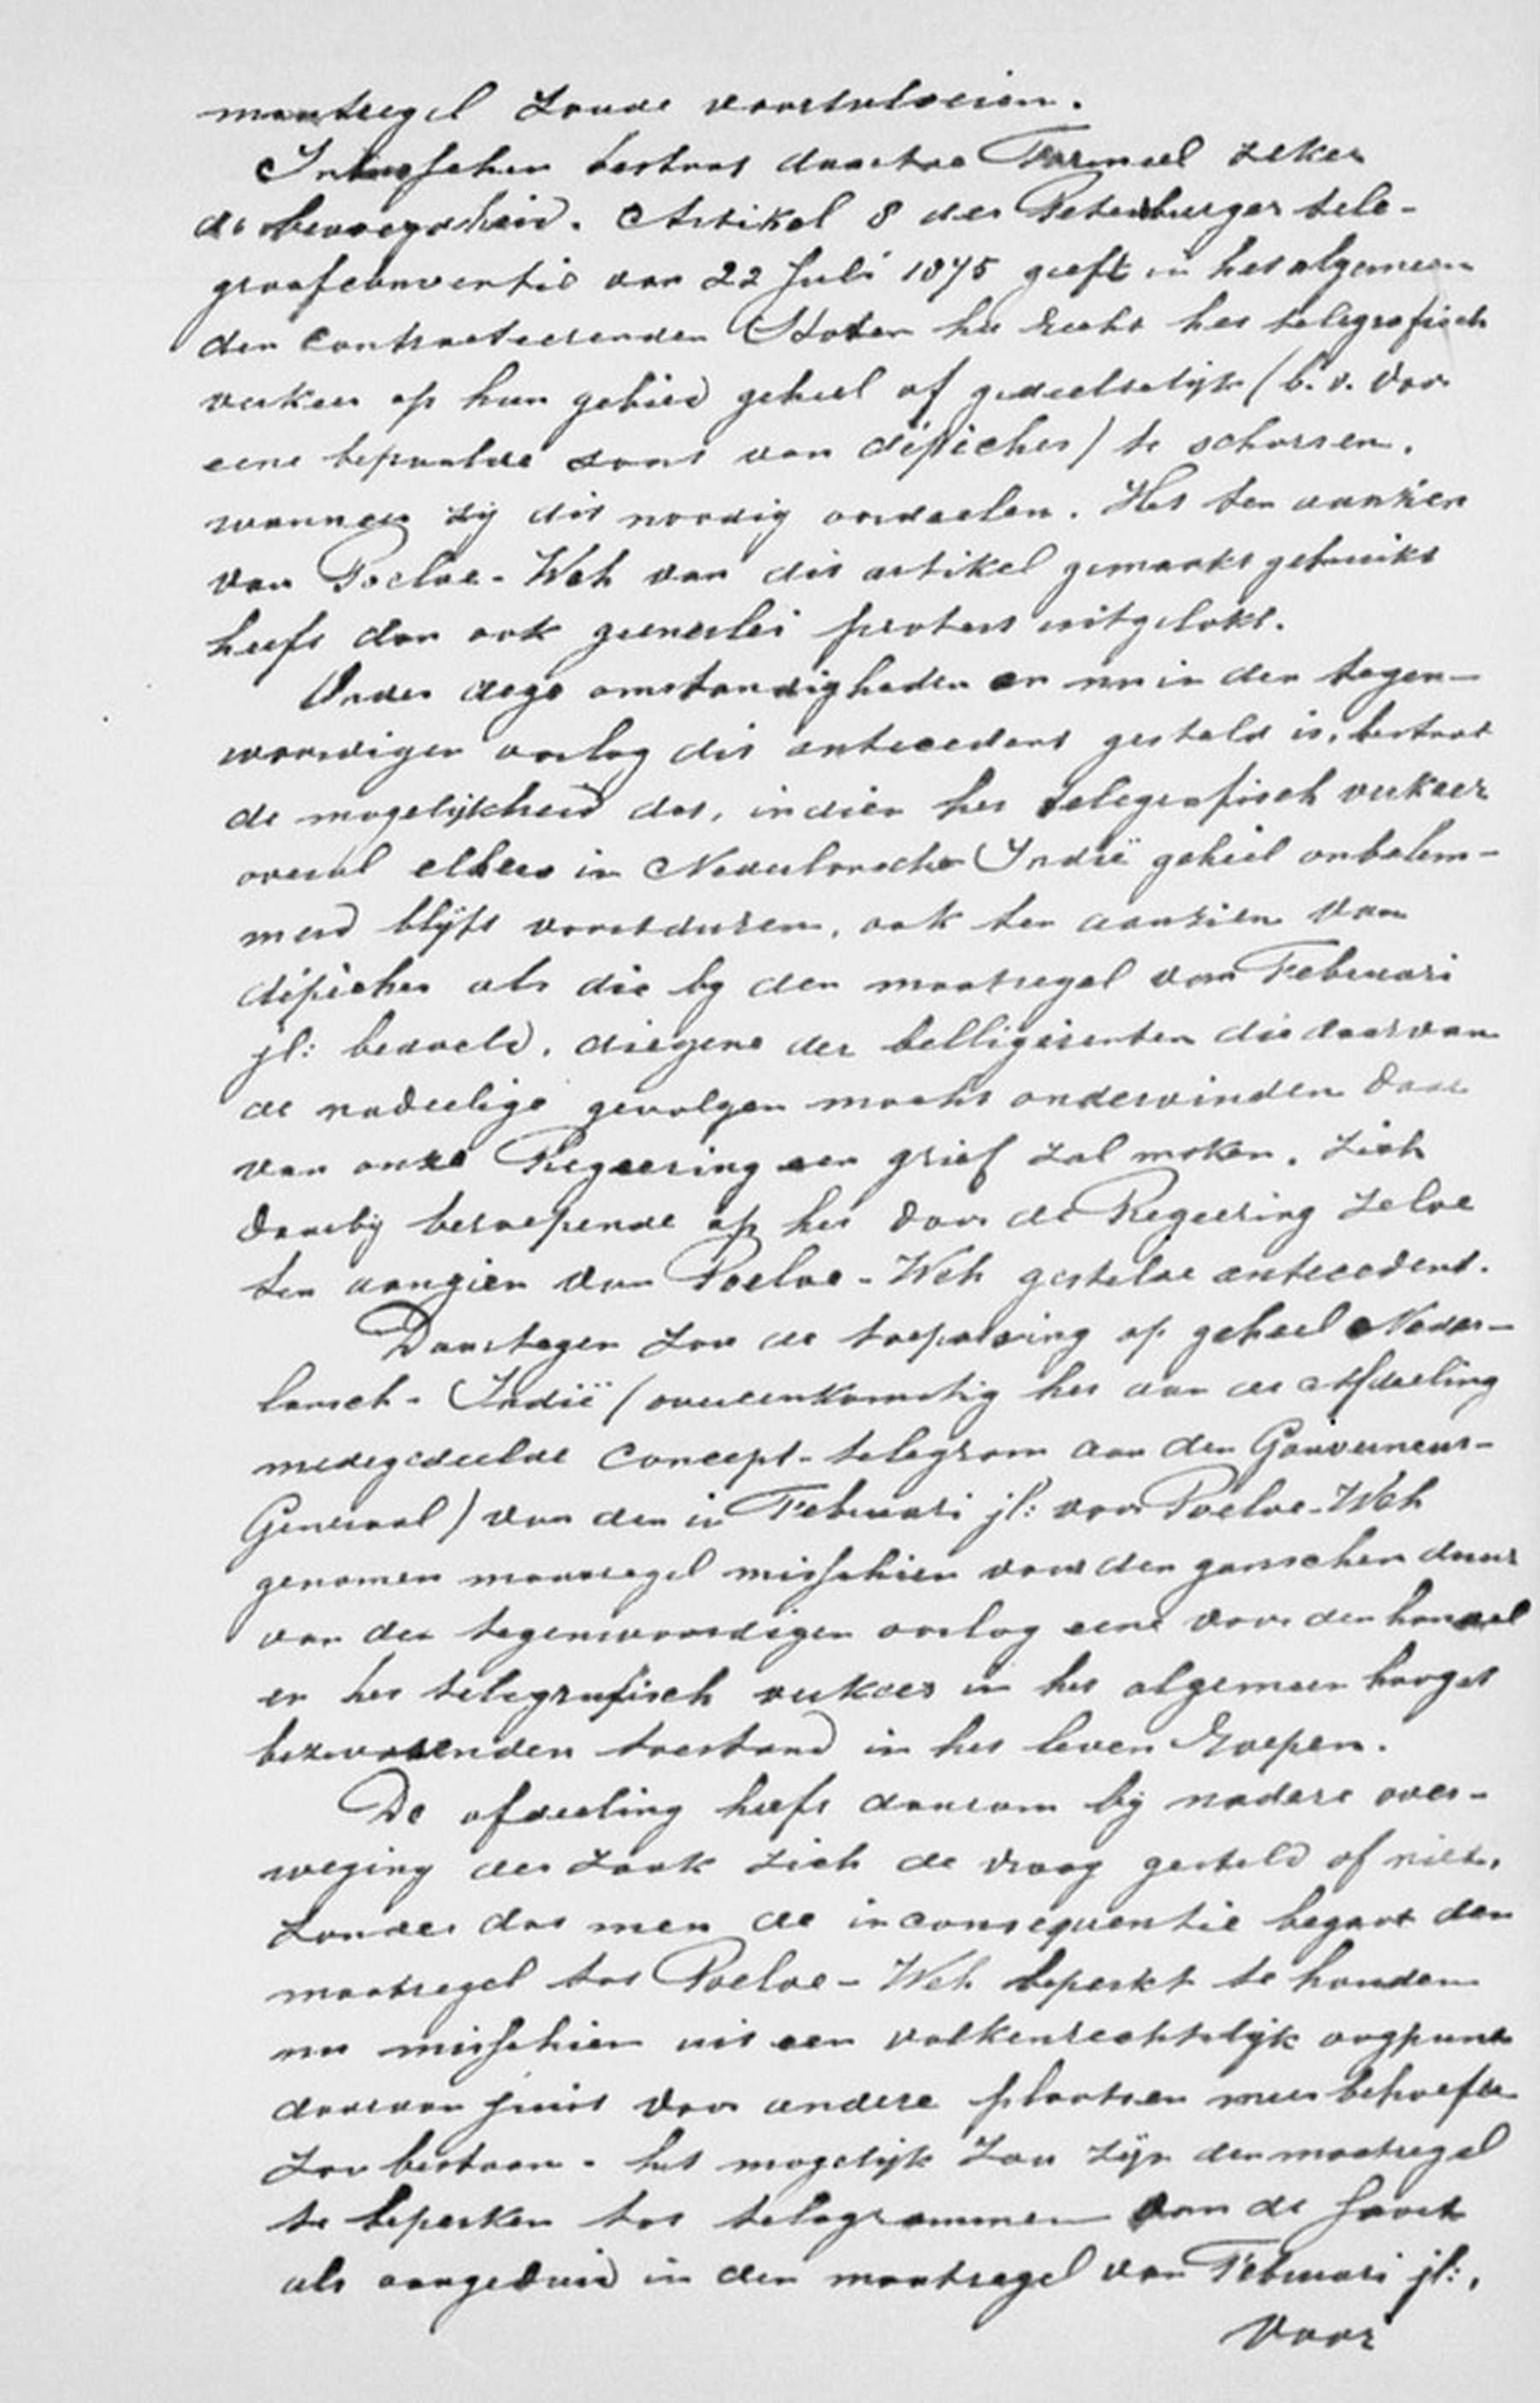 maatregel zoude voortvloeien.
Intusschen bestaat daartoe formeel zeker
de bevoegdheid. Artikel 8 der Petersburger tele-
graafconventie van 22 Juli 1875 geeft in het algemeen
den contracteerenden Staten het recht het telegrafisch
verkeer op hun gebied geheel of gedeeltelijk (b.v. voor
eene bepaalde soort van dépêches) te schorsen,
wanneer zij dit noodig oordeelen. Het ten aanzien
van Poeloe-Weh van dit artikel gemaakt gebruikt
heeft dan ook geenerlei protest uitgelokt.
Onder deze omstandigheden en nu in den tegen-
woordigen oorlog dit antecedent gesteld is, bestaat
de mogelijkheid dat, indien het telegrafisch verkeer
overal elders in Nederlandsch Indië geheel onbelem-
merd blijft voortduren, ook ten aanzien van
dépêches als die bij den maatregel van Februari
jl: bedoeld, diegene der belligerenten die daarvan
de nadeelige gevolgen mocht ondervinden daar
van onze Regeering een grief zal maken, zich
daarbij beroepende op het door de Regeering zelve
ten aanzien van Poeloe-Weh gestelde antecedent.
Daartegen zou de toepassing op geheel Neder-
lansch-Indië (overeenkomstig het aan de Afdeeling
medegedeelde concept-telegram aan den Gouverneur-
Generaal) van den in Februari jl: voor Poeloe-Weh
genomen maatregel misschien voor den ganschen duur
van den tegenwoordigen oorlog eene voor den handel
en het telegrafisch verkeer in het algemeen hoogst
bezwarenden toestand in het leven roepen.
De afdeeling heeft daarom bij nadere over-
weging der zaak zich de vraag gesteld of niet,
zonder dat men de inconsequentie begaat den
maatregel tot Poeloe-Weh beperkt te houden
nu misschien uit een volkenrechtelijk oogpunt
daaraan juist voor andere plaatsen meer behoefte
zou bestaan, het mogelijk zou zijn den maatregel
te beperken tot telegrammen van de soort
als aangeduid in den maatregel van Februari jl:,
voor